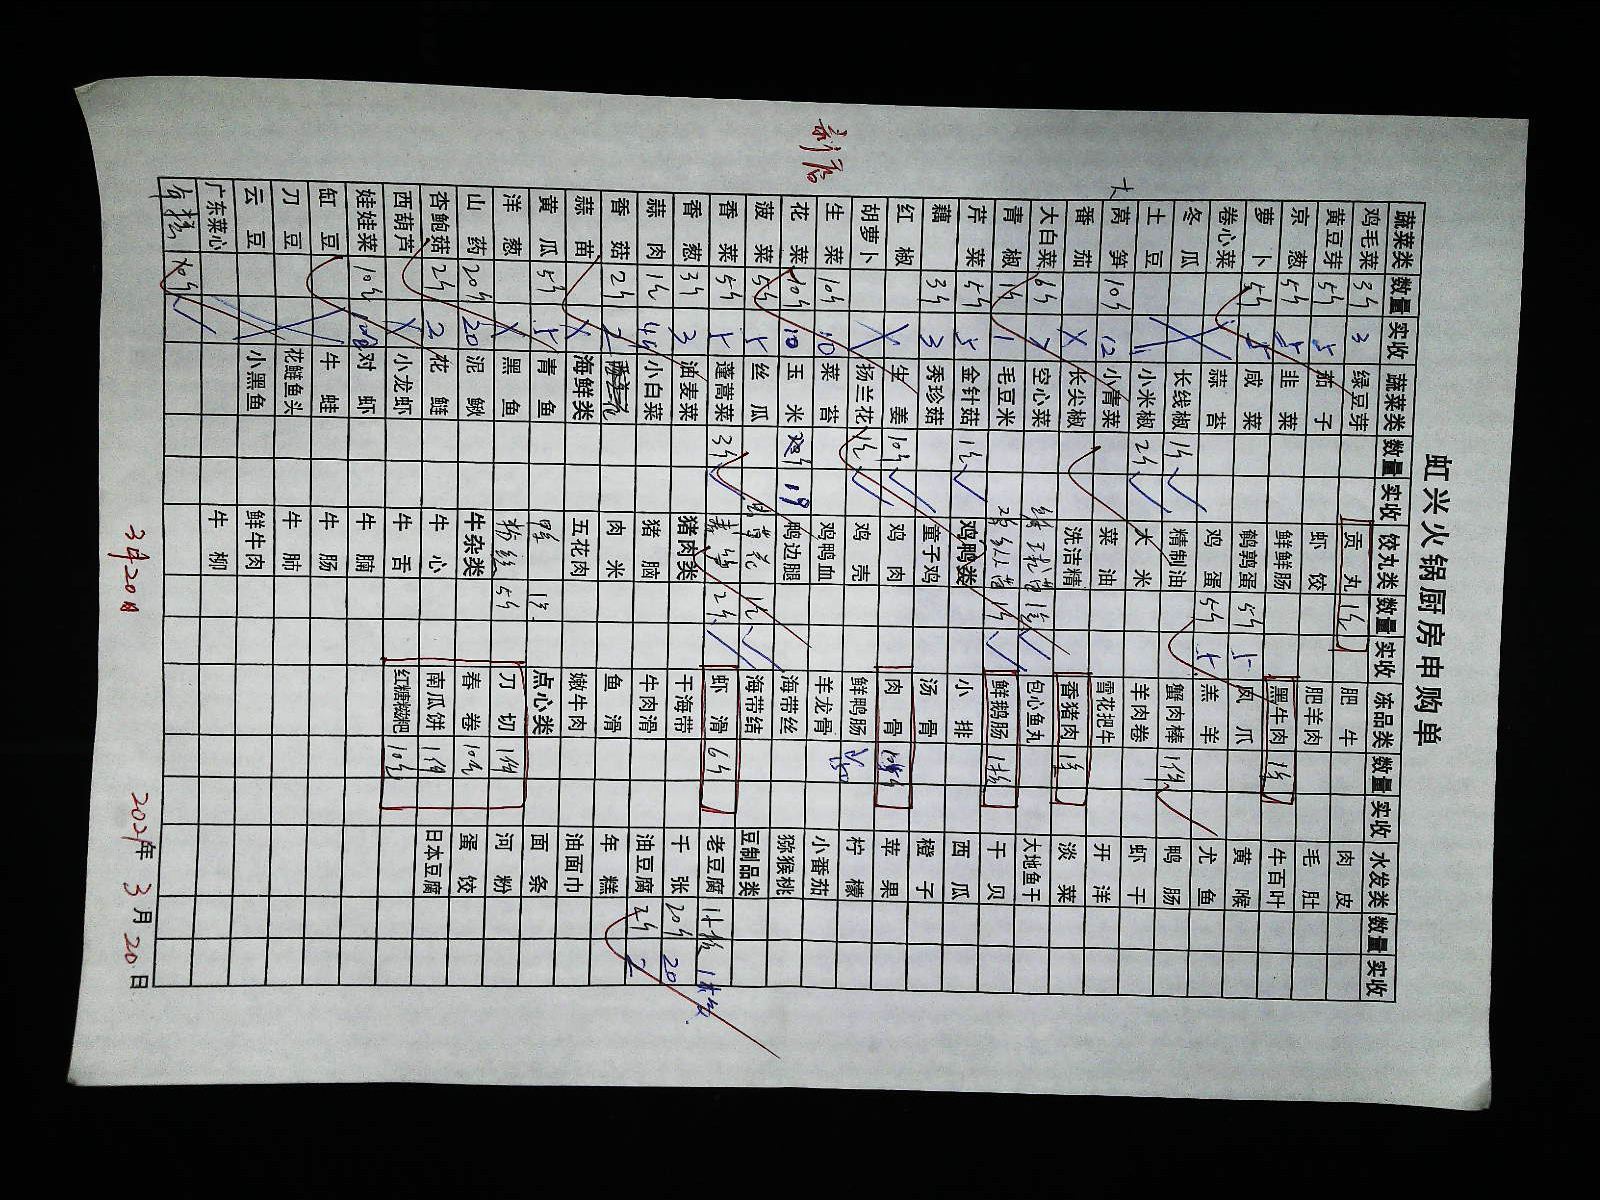 虹兴火锅厨房申购单
蔬菜类 数量 实收 蔬菜类 数量 实收 饺丸类 数量 实收 冻品类 数量 实收 水发类 数量 实收
鸡毛菜 3斤 3 绿豆芽 贡丸 1包 肥牛 肉皮
黄豆芽 5斤 5 茄子 虾饺 肥羊肉 毛肚
京葱 5斤 5 韭菜 鲜鲜肠 黑牛肉 1份 牛百叶
萝卜 5斤 5 咸菜 鹌鹑蛋 5斤 凤爪 黄喉
卷心菜 蒜苔 鸡蛋 5斤 羔羊 尤鱼
冬瓜 长线椒 1斤 精制油 蟹肉棒 1件 鸭肠
土豆 小米椒 2斤 大米 羊肉卷 虾干
莴笋 10斤 12 小青菜 菜油 雪花把牛 开洋
番茄 长尖椒 洗洁精 香猪肉 1份 淡菜
大白菜 6斤 7 空心菜 包心鱼丸 大地鱼干
青椒 1斤 1 毛豆米 鲜鹅肠 干贝
芹菜 5斤 5 金针菇 1包 鸡鸭类 小排 西瓜
藕 3斤 3 秀珍菇 童子鸡 汤骨 橙子
红椒 生姜 10斤 鸡肉 肉骨 苹果
胡萝卜 扬兰花 1包 鸡壳 鲜鸭肠 柠檬
生菜 10斤 10 菜苔 鸡鸭血 羊龙骨 小番茄
花菜 10斤 10 玉米 19 鸭边腿 海带丝 猕猴桃
菠菜 5斤 5 丝瓜 海带结 豆制品类
香菜 5斤 5 蓬蒿菜 3斤 虾滑 6斤 老豆腐 1板
香葱 3斤 3 油麦菜 猪肉类 干海带 千张 20斤 20
蒜肉 1包 小白菜 猪脑 牛肉滑 油豆腐 2斤 2
香菇 2斤 2 肉米 鱼滑 年糕
蒜苗 海鲜类 五花肉 嫩牛肉 油面巾
黄瓜 5斤 5 青鱼 点心类 面条
洋葱 黑鱼 粉丝 5斤 刀切 1件 河粉
山药 20斤 20 泥鳅 牛杂类 春卷 10包 蛋饺
杏鲍菇 2斤 2 花鲢 牛心 南瓜饼 1件 日本豆腐
西葫芦 小龙虾 牛舌 红糖糍粑 10包
娃娃菜 10包 对虾 牛腩
缸豆 牛蛙 牛肠
刀豆 花鲢鱼头 牛肺
云豆 小黑鱼 鲜牛肉
广东菜心 牛柳
年糕 20斤
3月20日 2021年3月20日